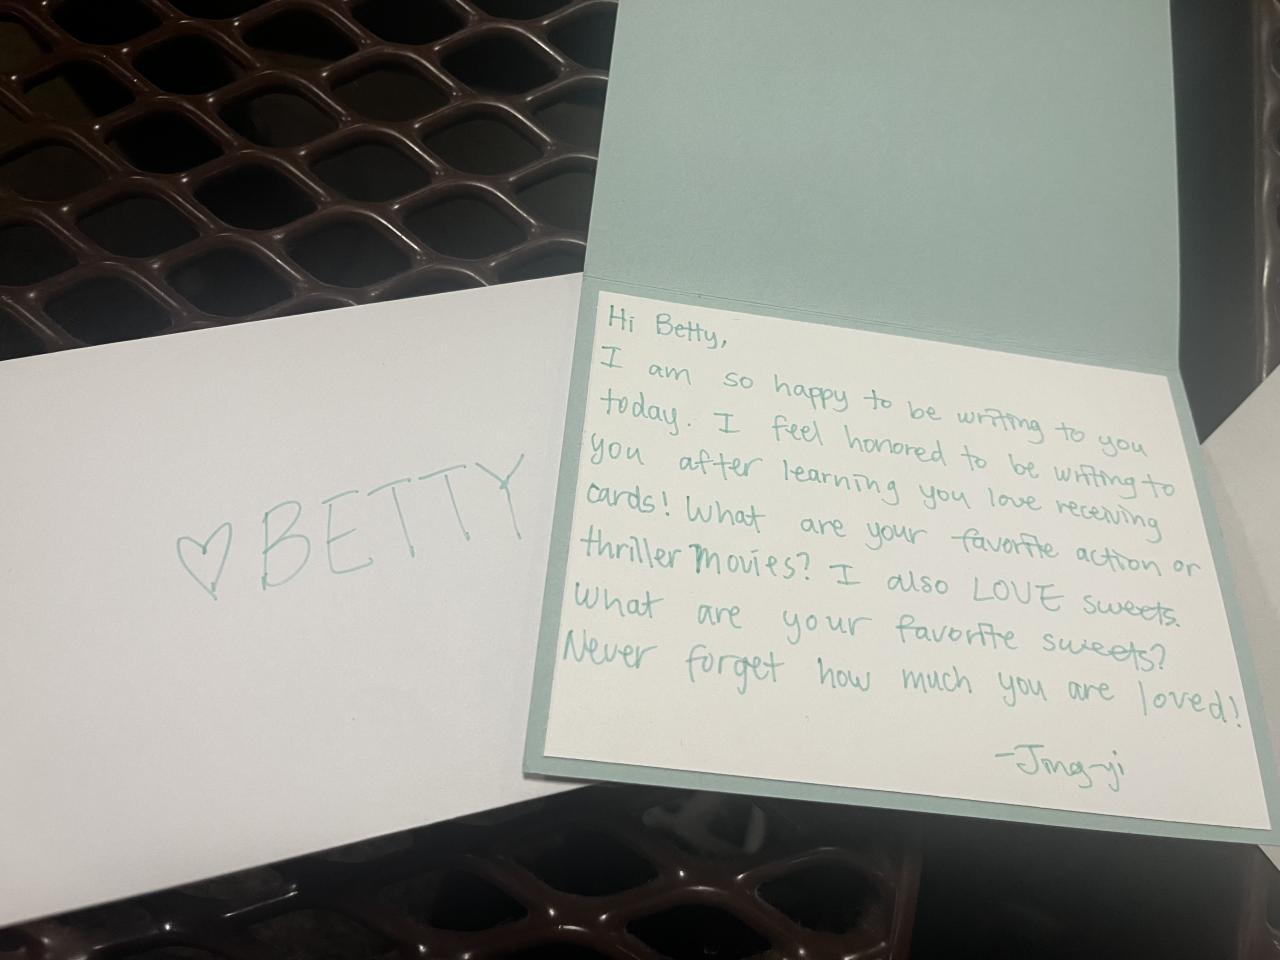 ♡ BETTY
Hi Betty,
I am so happy to be writing to you
today. I feel honored to be writing to
you after learning you love receiving
cards! What are your favorite action or
thriller movies? I also LOVE sweets.
What are your favorite sweets?
Never forget how much you are loved!
-Jing-yi